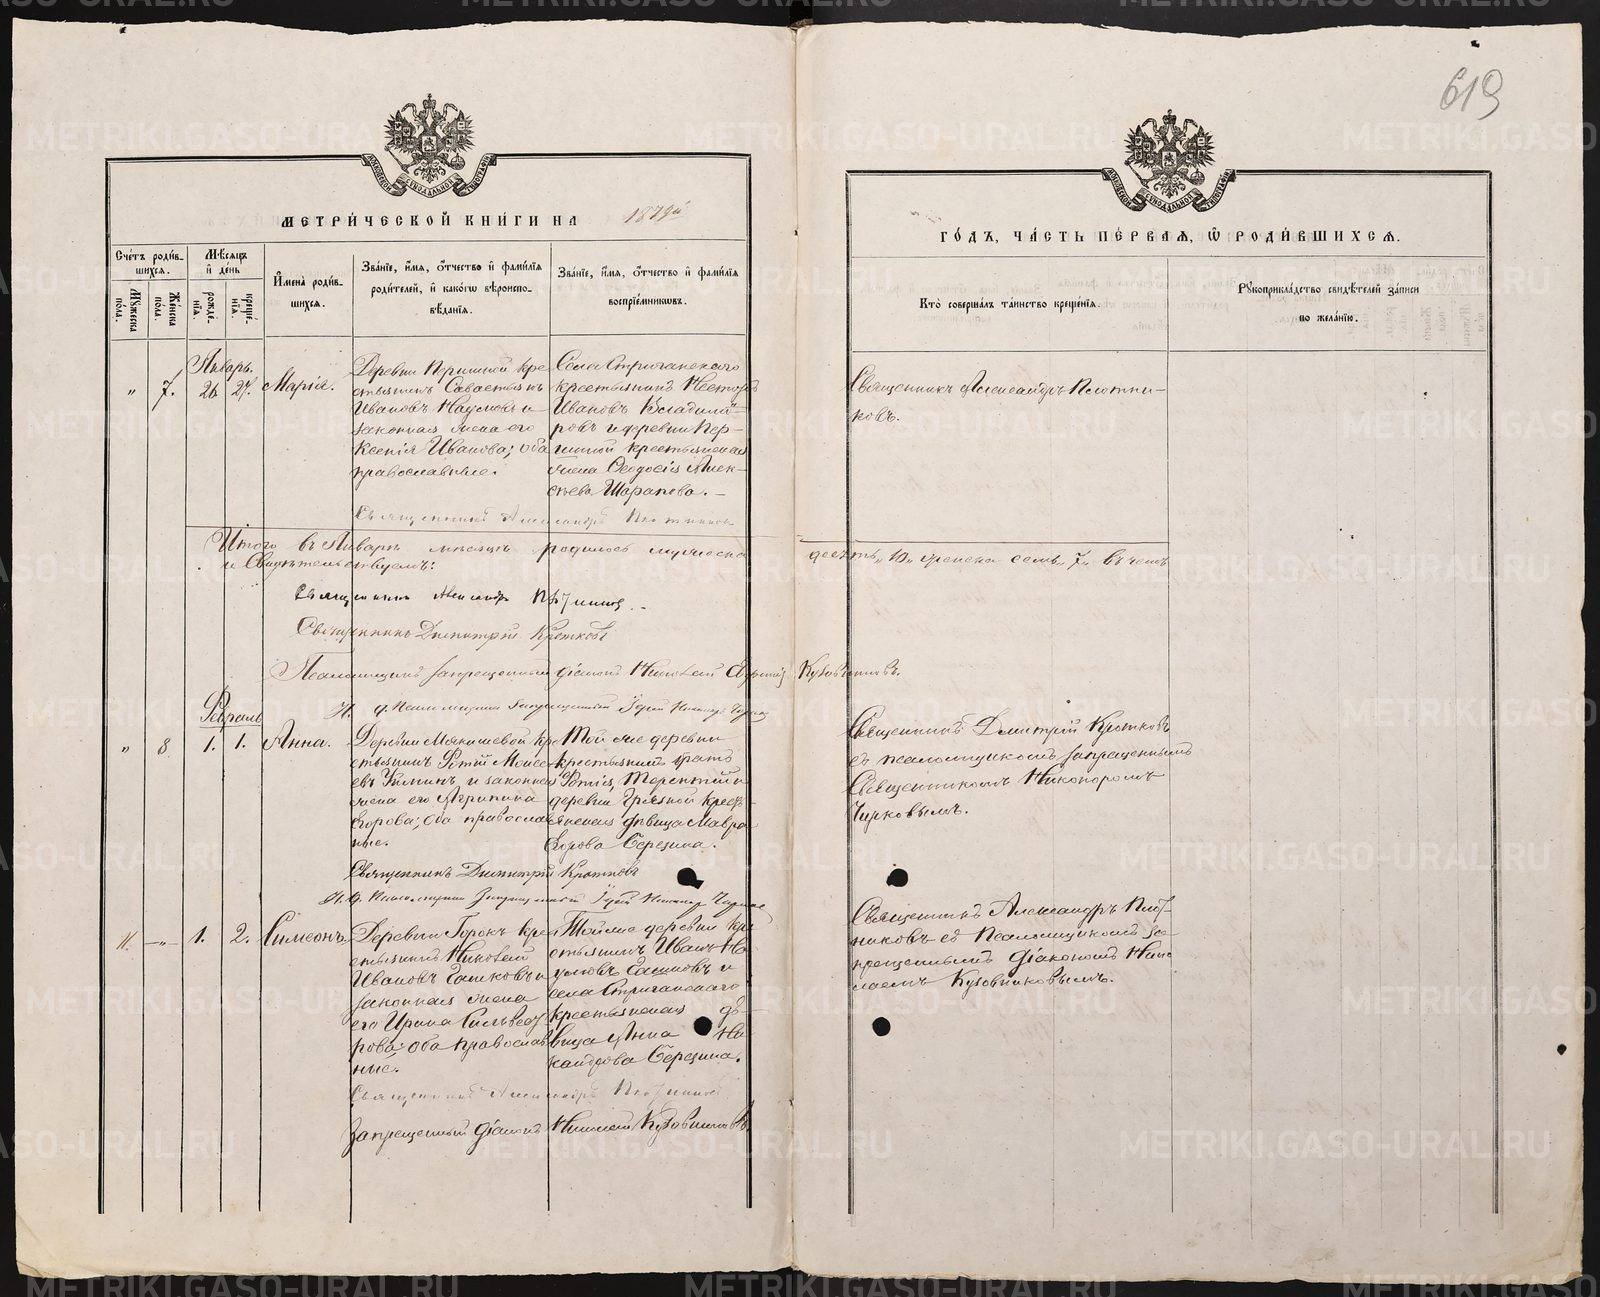 619
МЕТРИ́ЧЕСКОЙ КНИ́ГИ НА 1879й
ГО́ДЪ, ЧА́СТЬ ПЕ́РВАЯ, Ѡ҆ РОДИ́ВШИХСЯ.
Сче́тъ роди́вшихся.
Мꙋ́жеска пола.
Же́нска пола.
Мѣ́сяцъ и҆ де́нь
рожде́нїѧ.
креще́нїѧ.
И҆мена̀ роди́вшихся.
Зва́нїе, и҆́мя, ѻ҆́тчество и҆ фами́лїя
роди́телей, и҆ како́гѡ вѣроиспо-
вѣ́данїя.
Зва́нїе, и҆́мя, ѻ҆́тчество и҆ фами́лїя
воспрїе́мниковъ.
Кто̀ соверша́лъ та́инство креще́нїя.
Рꙋкоприкла́дство свидѣ́телей за́писи
по жела́нїю.
Январь.
„ 7. 26 27. Марія.
Деревни Першиной кре-
стьянинъ Савастьянъ
Ивановъ Наумовъ и
законная жена его
Ксенія Иванова; оба
православные.
Села Стриганскаго
крестьянинъ Несторъ
Ивановъ
и деревни Пер-
шиной крестьянская
жена Ѳеодосія Алек-
сѣева Шарапова. –
Священникъ Александръ Плотни-
ковъ.
Священникъ Александръ Плотниковъ
Итого въ Январѣ мѣсяцѣ родилось мужеска десять „10„ женска семь „7„ въ чемъ
и свидѣтельствуемъ:
Священникъ Александръ Плотниковъ. –
Священникъ Димитрій Кротковъ
Псаломщикъ запрещенный діаконъ Николай Кузовниковъ.
И. д. Псаломщика Запрещенный Іерей Никаноръ Чирковъ
Февраль
„ 8 1. 1. Анна.
Деревни Мякишевой кре-
стьянинъ Фотій Моисе-
евъ и законная
жена его Агрипина
Егорова; оба православ-
ные.
Той же деревни
крестьянинъ братъ
Фотія, Терентій и
деревни Грязной кресть-
янская дѣвица Мавра
Егорова Березина.
Священникъ Дмитрій Кротковъ
съ псаломщикомъ запрещеннымъ
Священникомъ Никаноромъ
Чирковымъ.
Священникъ Димитрій Кротковъ
И. д. Псаломщика Запрещенный Іерей Никаноръ Чирковъ
11. –„– 1. 2. Симеонъ.
Деревни Горокъ кре-
стьянинъ Николай
Ивановъ Башковъ и
законная жена
его Ирина Сильвест-
рова; оба православ-
ные.
Той же деревни кре-
стьянинъ Иванъ На-
умовъ Башковъ и
села Стриганскаго
крестьянская дѣ-
вица Анна Ни-
кандрова Березина.
Священникъ Александръ Плот-
никовъ съ Псаломщикомъ за-
прещеннымъ Діакономъ Нико-
лаемъ Кузовниковымъ.
Священникъ Александръ Плотниковъ
Запрещенный діаконъ Николай Кузовниковъ